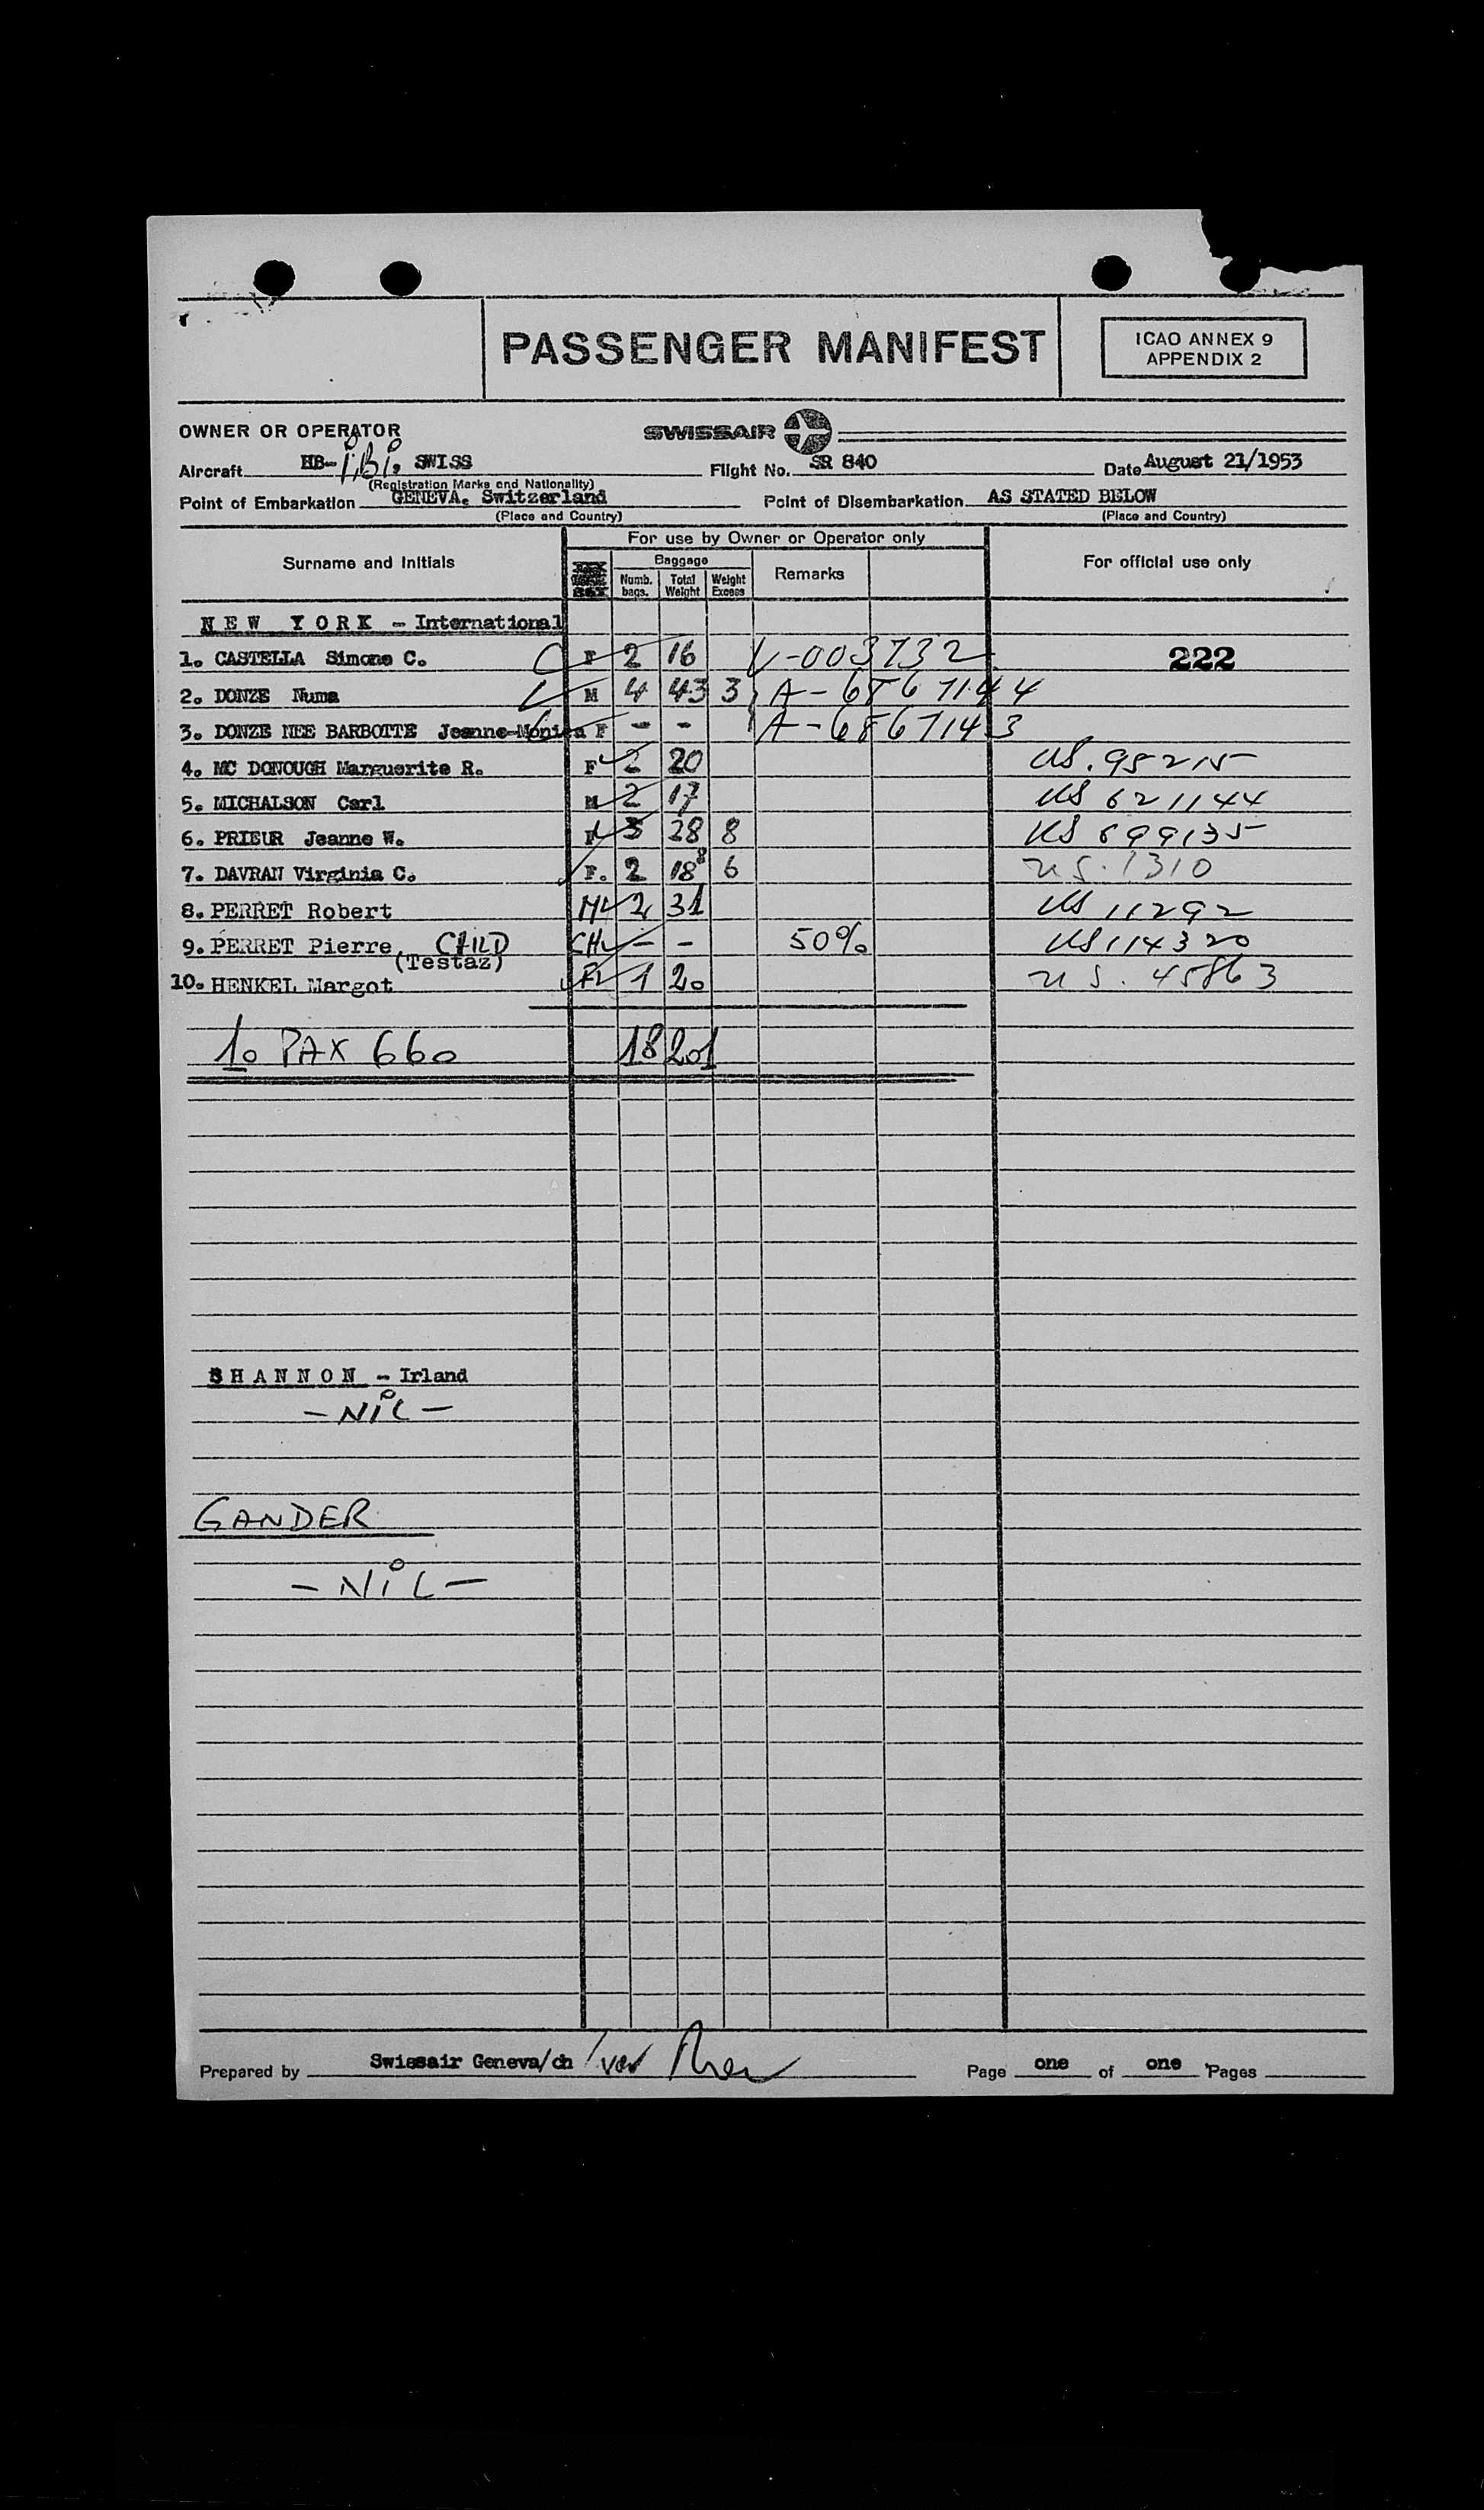 PASSENGER MANIFEST
ICAO ANNEX 9
APPENDIX 2
OWNER OR OPERATOR SWISSAIR
Aircraft HB-iBi, SWISS Flight No. SR 840 Date August 21/1953
(Registration Marks and Nationality)
Point of Embarkation GENEVA, Switzerland Point of Disembarkation AS STATED BELOW
(Place and Country) (Place and Country)
For use by Owner or Operator only
Surname and Initials Baggage Remarks For official use only
Numb. bags. Total Weight Weight Excess
NEW YORK - International
1. CASTELLA Simone C. F 2 16 V-003732 222
2. DONZE Numa M 4 43 3 A-6867144
3. DONZE NEE BARBOTTE Jeanne-Monica F - - A-6867143
4. MC DONOUGH Marguerite R. F 2 20 US. 95215
5. MICHALSON Carl M 2 17 US 621144
6. PRIEUR Jeanne W. F 3 28 8 US 699135
7. DAVRAN Virginia C. F. 2 18 6 US. 1310
8. PERRET Robert M 2 31 US 11292
9. PERRET Pierre CHILD CH - - 50% US 114320
(Testaz)
10. HENKEL Margot F 1 20 US. 45863
10 PAX 660 18 201
SHANNON - Irland
- NiL -
GANDER
- NiL -
Prepared by Swissair Geneva/ch Page one of one Pages